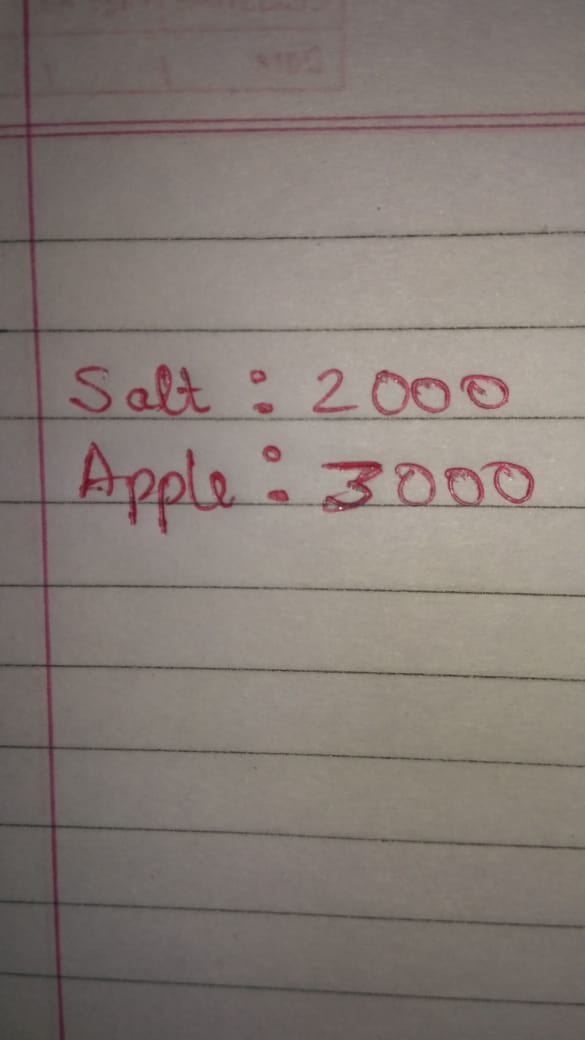 Salt : 2000
Apple : 3000